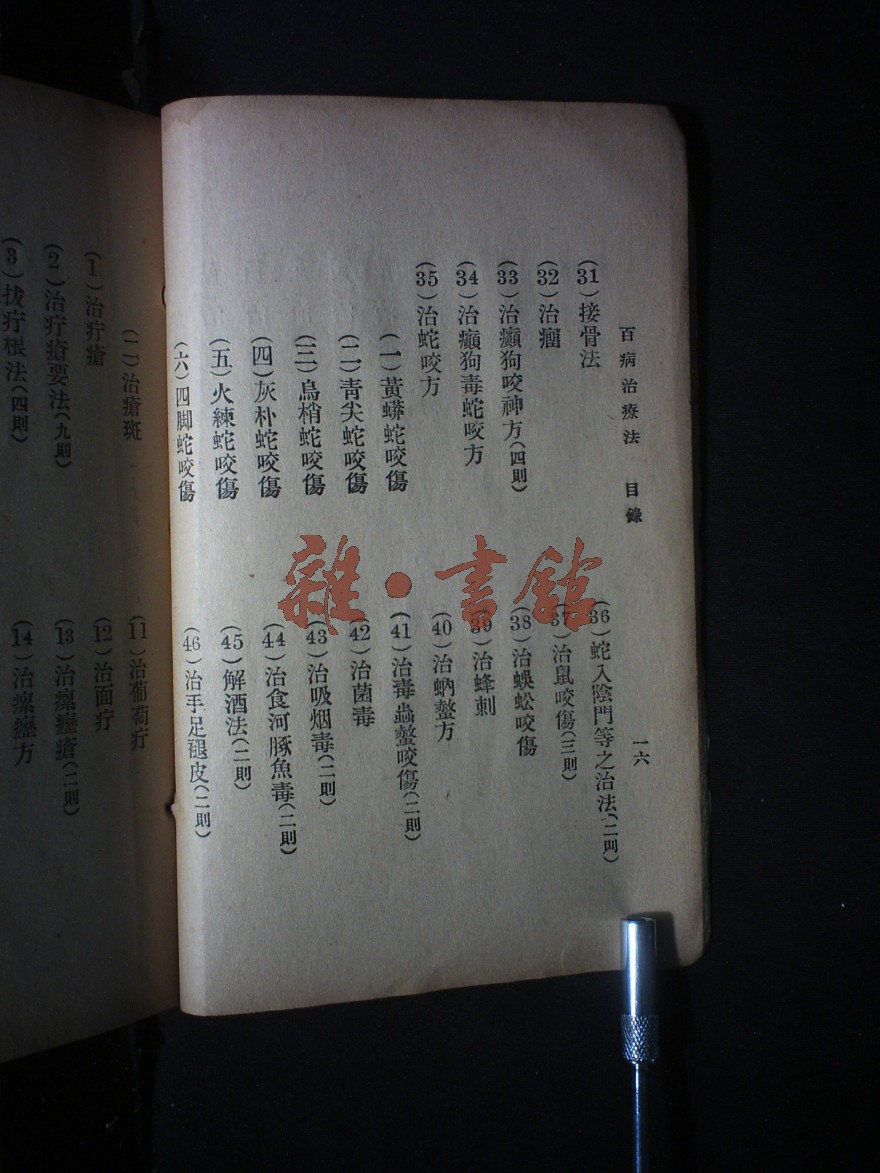 百病治療法　目錄
一六
(31)接骨法
(32)治瘤
(33)治癲狗咬神方(四則)
(34)治癲狗毒蛇咬方
(35)治蛇咬方
(一)黃蟒蛇咬傷
(二)青尖蛇咬傷
(三)烏梢蛇咬傷
(四)灰朴蛇咬傷
(五)火練蛇咬傷
(六)四脚蛇咬傷
(36)蛇入陰門等之治法(二則)
(37)治鼠咬傷(三則)
(38)治蜈蚣咬傷
(39)治蜂刺
(40)治蚋螫方
(41)治毒蟲螫咬傷(二則)
(42)治菌毒
(43)治吸烟毒(二則)
(44)治食河豚魚毒(二則)
(45)解酒法(二則)
(46)治手足褪皮(二則)
(二)治瘡斑
(1)治疔瘡
(2)治疔瘡要法(九則)
(3)拔疔根法(四則)
(11)治葡萄疔
(12)治面疔
(13)治瘰癧瘡(二則)
(14)治瘰癧方
雜·書館